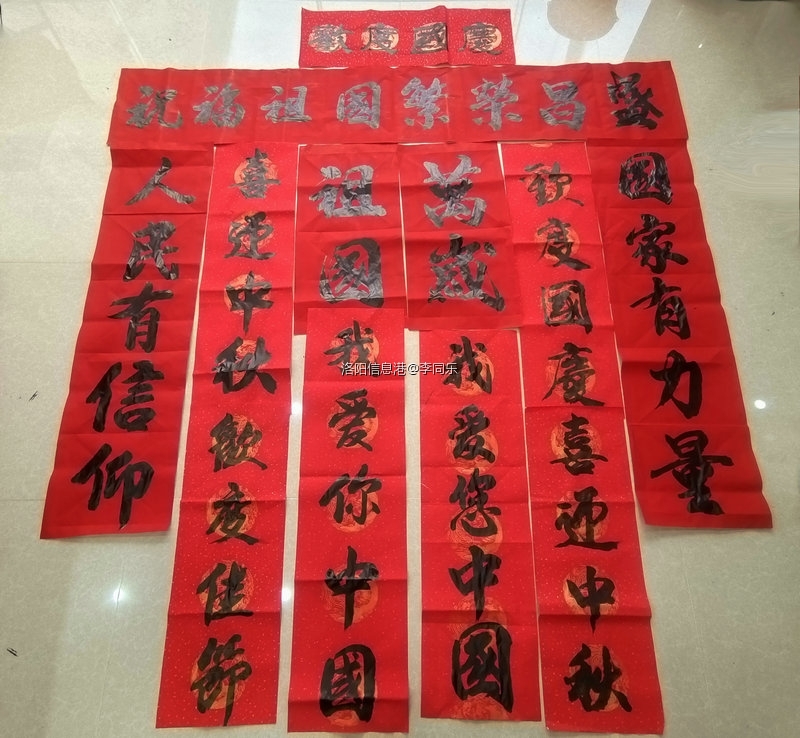 歡度國慶
祝福祖國繁榮昌盛
人民有信仰
喜迎中秋歡度佳節
祖國
萬歲
歡度國慶喜迎中秋
國家有力量
我愛你中國
我愛您中國
洛阳信息港@李同乐